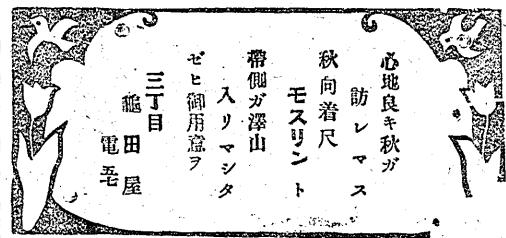 心地良キ秋ガ
訪レマス
秋向着尺
モスリント
帶側ガ澤山
入リマシタ
ゼヒ御用意ヲ
三丁目
龜田屋
電五